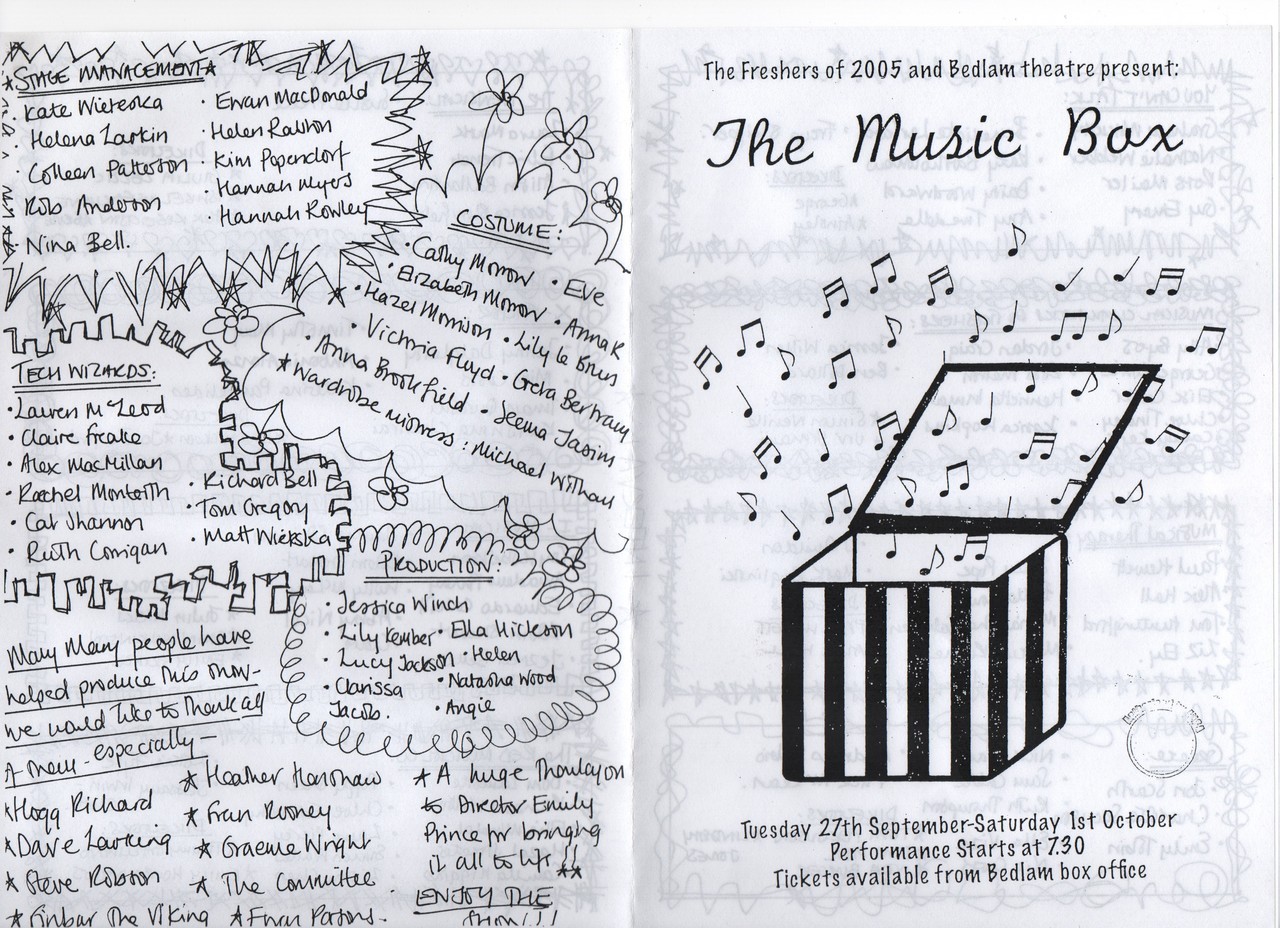 ★STAGE MANAGEMENT★
· Kate Wieteska
· Helena Larkin
· Colleen Patterson
· Rob Anderson
· Nina Bell.
· Ewan MacDonald
· Helen Ralston
· Kim Papendorf
· Hannah Myers
· Hannah Rowley
COSTUME:
· Cathy Morrow · Eve
· Elizabeth Morrow · Anna K
· Hazel Morrison · Lily le Brus
· Victoria Fluyd · Greta Bertram
· Anna Brookfield · Seema Jasim
★ Wardrobe mistress: Michael Withail
TECH WIZARDS:
· Lauren McLeod
· Claire Freake
· Alex MacMillan
· Rachel Monteith
· Cat Shannon
· Ruth Corrigan
· Richard Bell
· Tom Gregory
· Matt Wieteska
PRODUCTION:
· Jessica Winch
· Lily Kember · Ella Hickson
· Lucy Jackson · Helen
· Clarissa · Natasha Wood
Jacob. · Angie
Many Many people have
helped produce this show -
we would like to thank all
especially -
★ Hogg Richard
★ Dave Larking
★ Steve Robson
★ Finbar The Viking
★ Heather
★ Fran Rooney
★ Graeme Wright
★ The Committee
★ Ewan Parsons.
★ A huge Thankyou
to Director Emily
Prince for bringing
it all to life!!
★★
ENJOY THE
SHOW!!!
The Freshers of 2005 and Bedlam theatre present:
The Music Box
Tuesday 27th September-Saturday 1st October
Performance Starts at 7.30
Tickets available from Bedlam box office